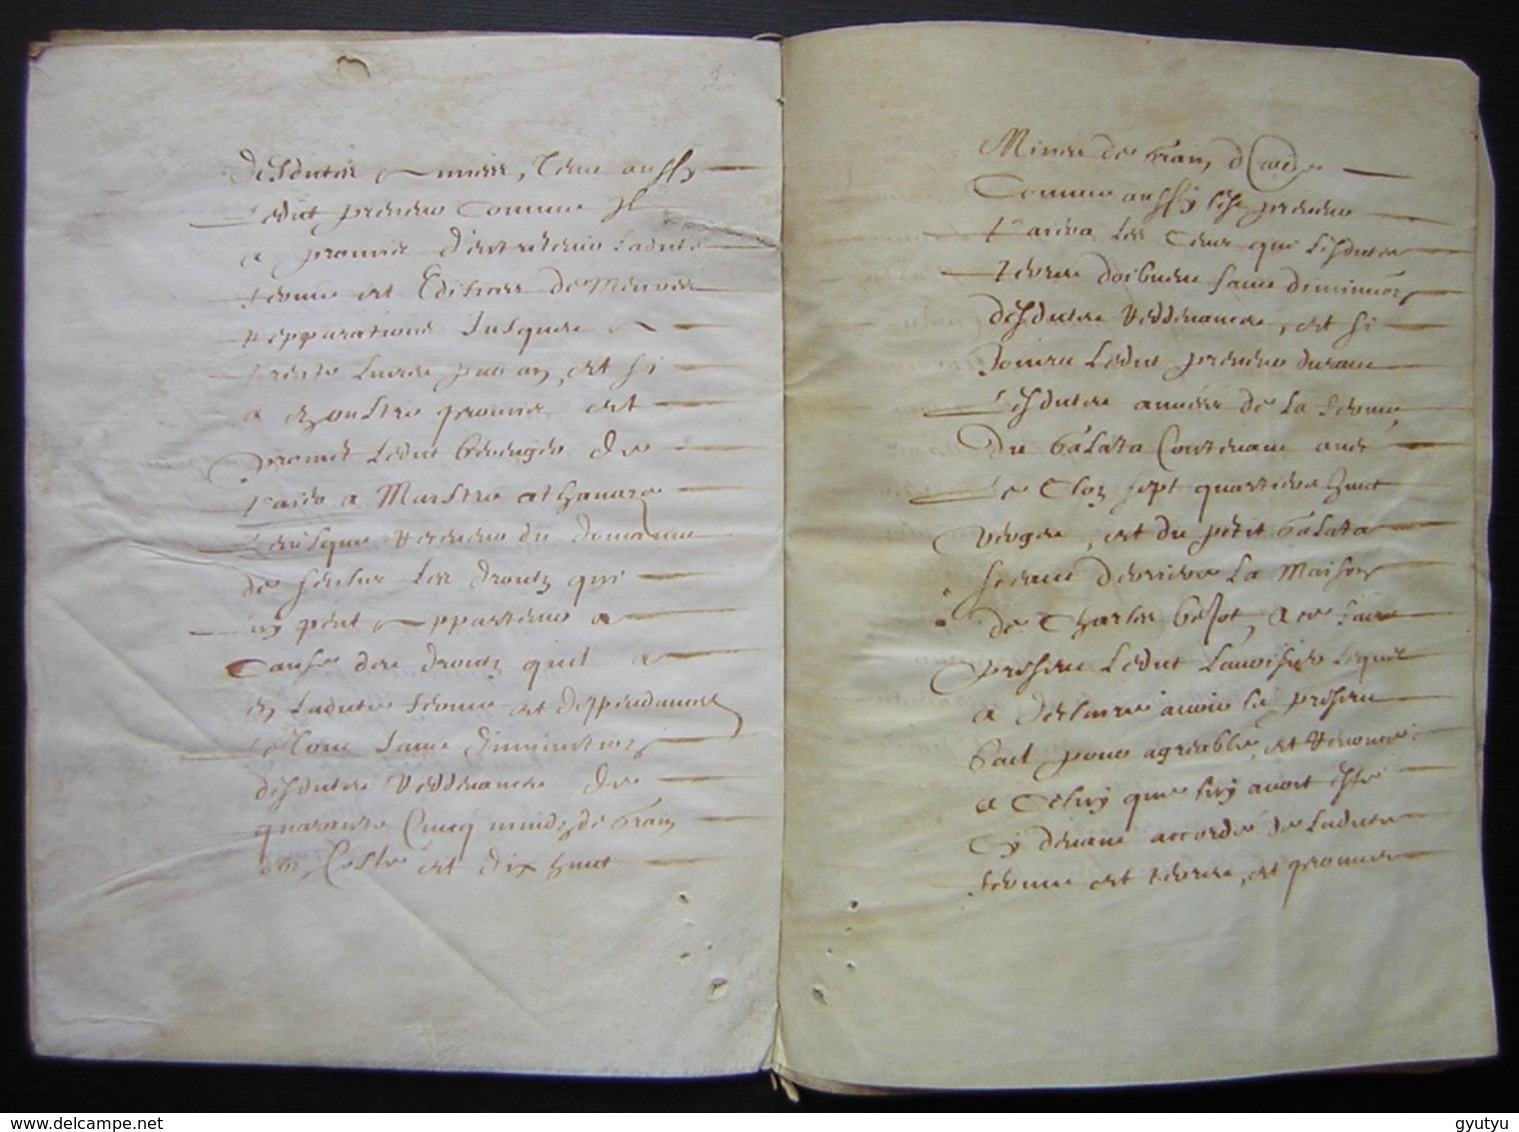 desdites années, sera aussy
ledict preneur comme il
a promis d'entretenir ladite
ferme et Edifices de Menues
repparations Jusques a
trente livres par an, et si
a en oustre promis et
promet ledict de
paier a Maistre
receveur du domaine
de les droictz qui
luy peut appartenir a
cause des droictz quil a
en ladite ferme et deppendances
le tout sans diminution
desdites redevances de
quarante Cincq muidz de grain
d'un Costé et dix huict
Mines de grain d'
Comme aussy ledit preneur
paiera les Cens que lesdites
terres doibvent sans diminuon
desdites reddevances, et si
Jouira ledict preneur durant
lesdites années de la ferme
du Galata Contenant avec
le Cloz sept quartiers huict
verges, et du petit Galata
seant derriere la Maison
de Charles a ce faire
present ledict lequel
a declairé avoir le present
bail pour agreable, et renoncé
a Celuy que luy avoit esté
Cy devant accordé de ladite
ferme et terres, et promis
gyutyu